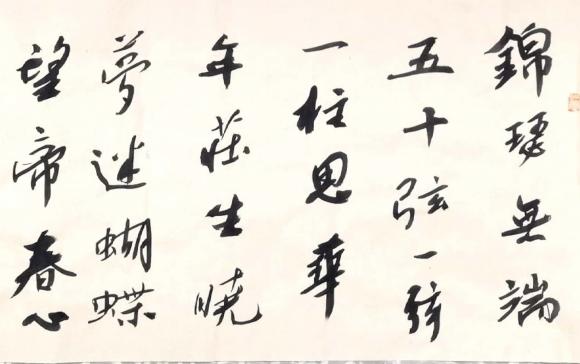 錦瑟無端
五十弦一弦
一柱思華
年莊生曉
夢迷蝴蝶
望帝春心